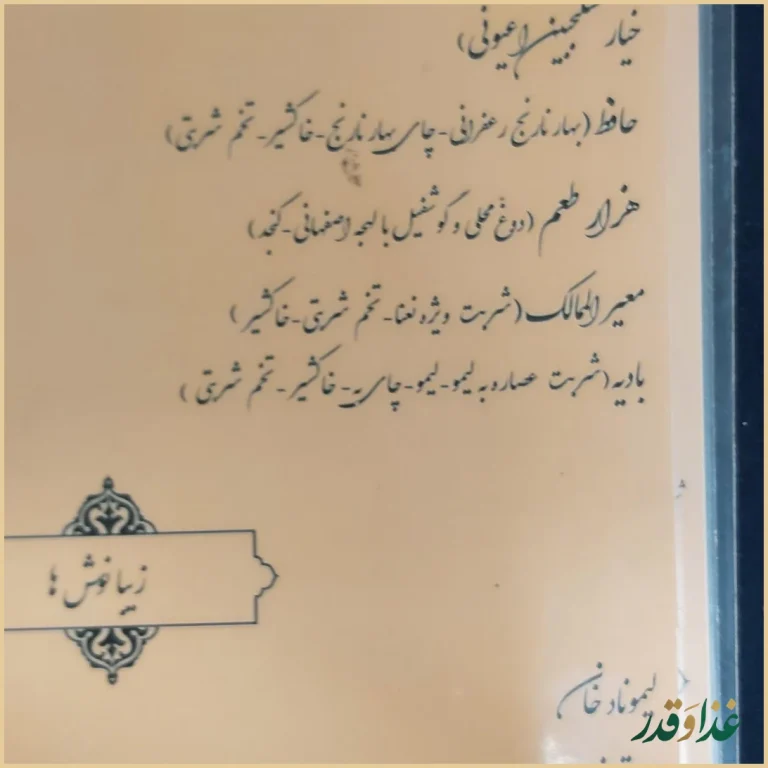 خیار سکنجبین اعیونی)
حافظ (بهار نارنج زعفرانی-چای بهار نارنج-خاکشیر-تخم شربتی)
هزار طعم (دوغ محلی و گوشفیل با لهجه اصفهانی-کنجد)
معیر الممالک (شربت ویژه نعنا-تخم شربتی-خاکشیر)
بادیه (شربت عصاره به لیمو-لیمو-چای به-خاکشیر-تخم شربتی)
زیبا نوش ها
لیموناد خان
غذا و قدر